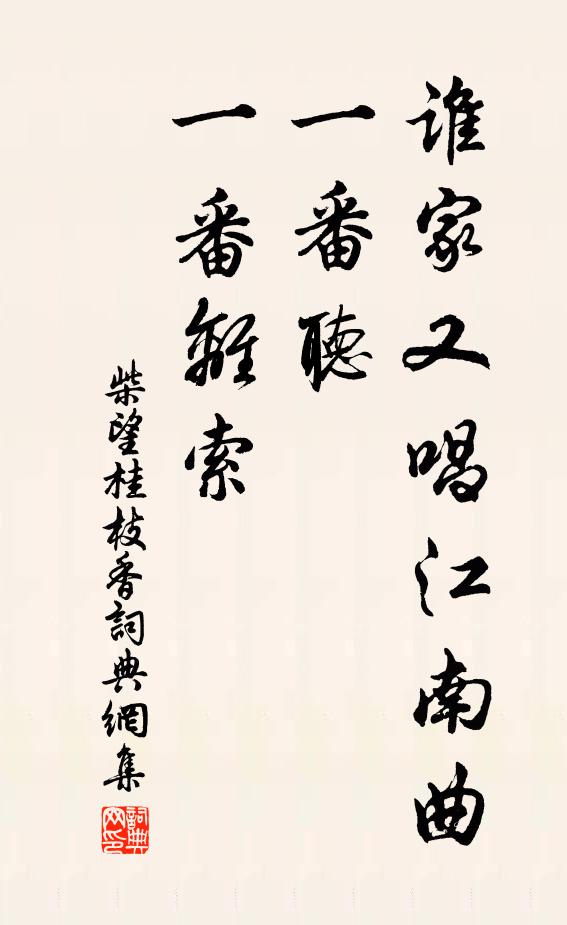 谁家又唱江南曲
一番聽
一番離索
柴望桂枝香詞典網集
詞典網印